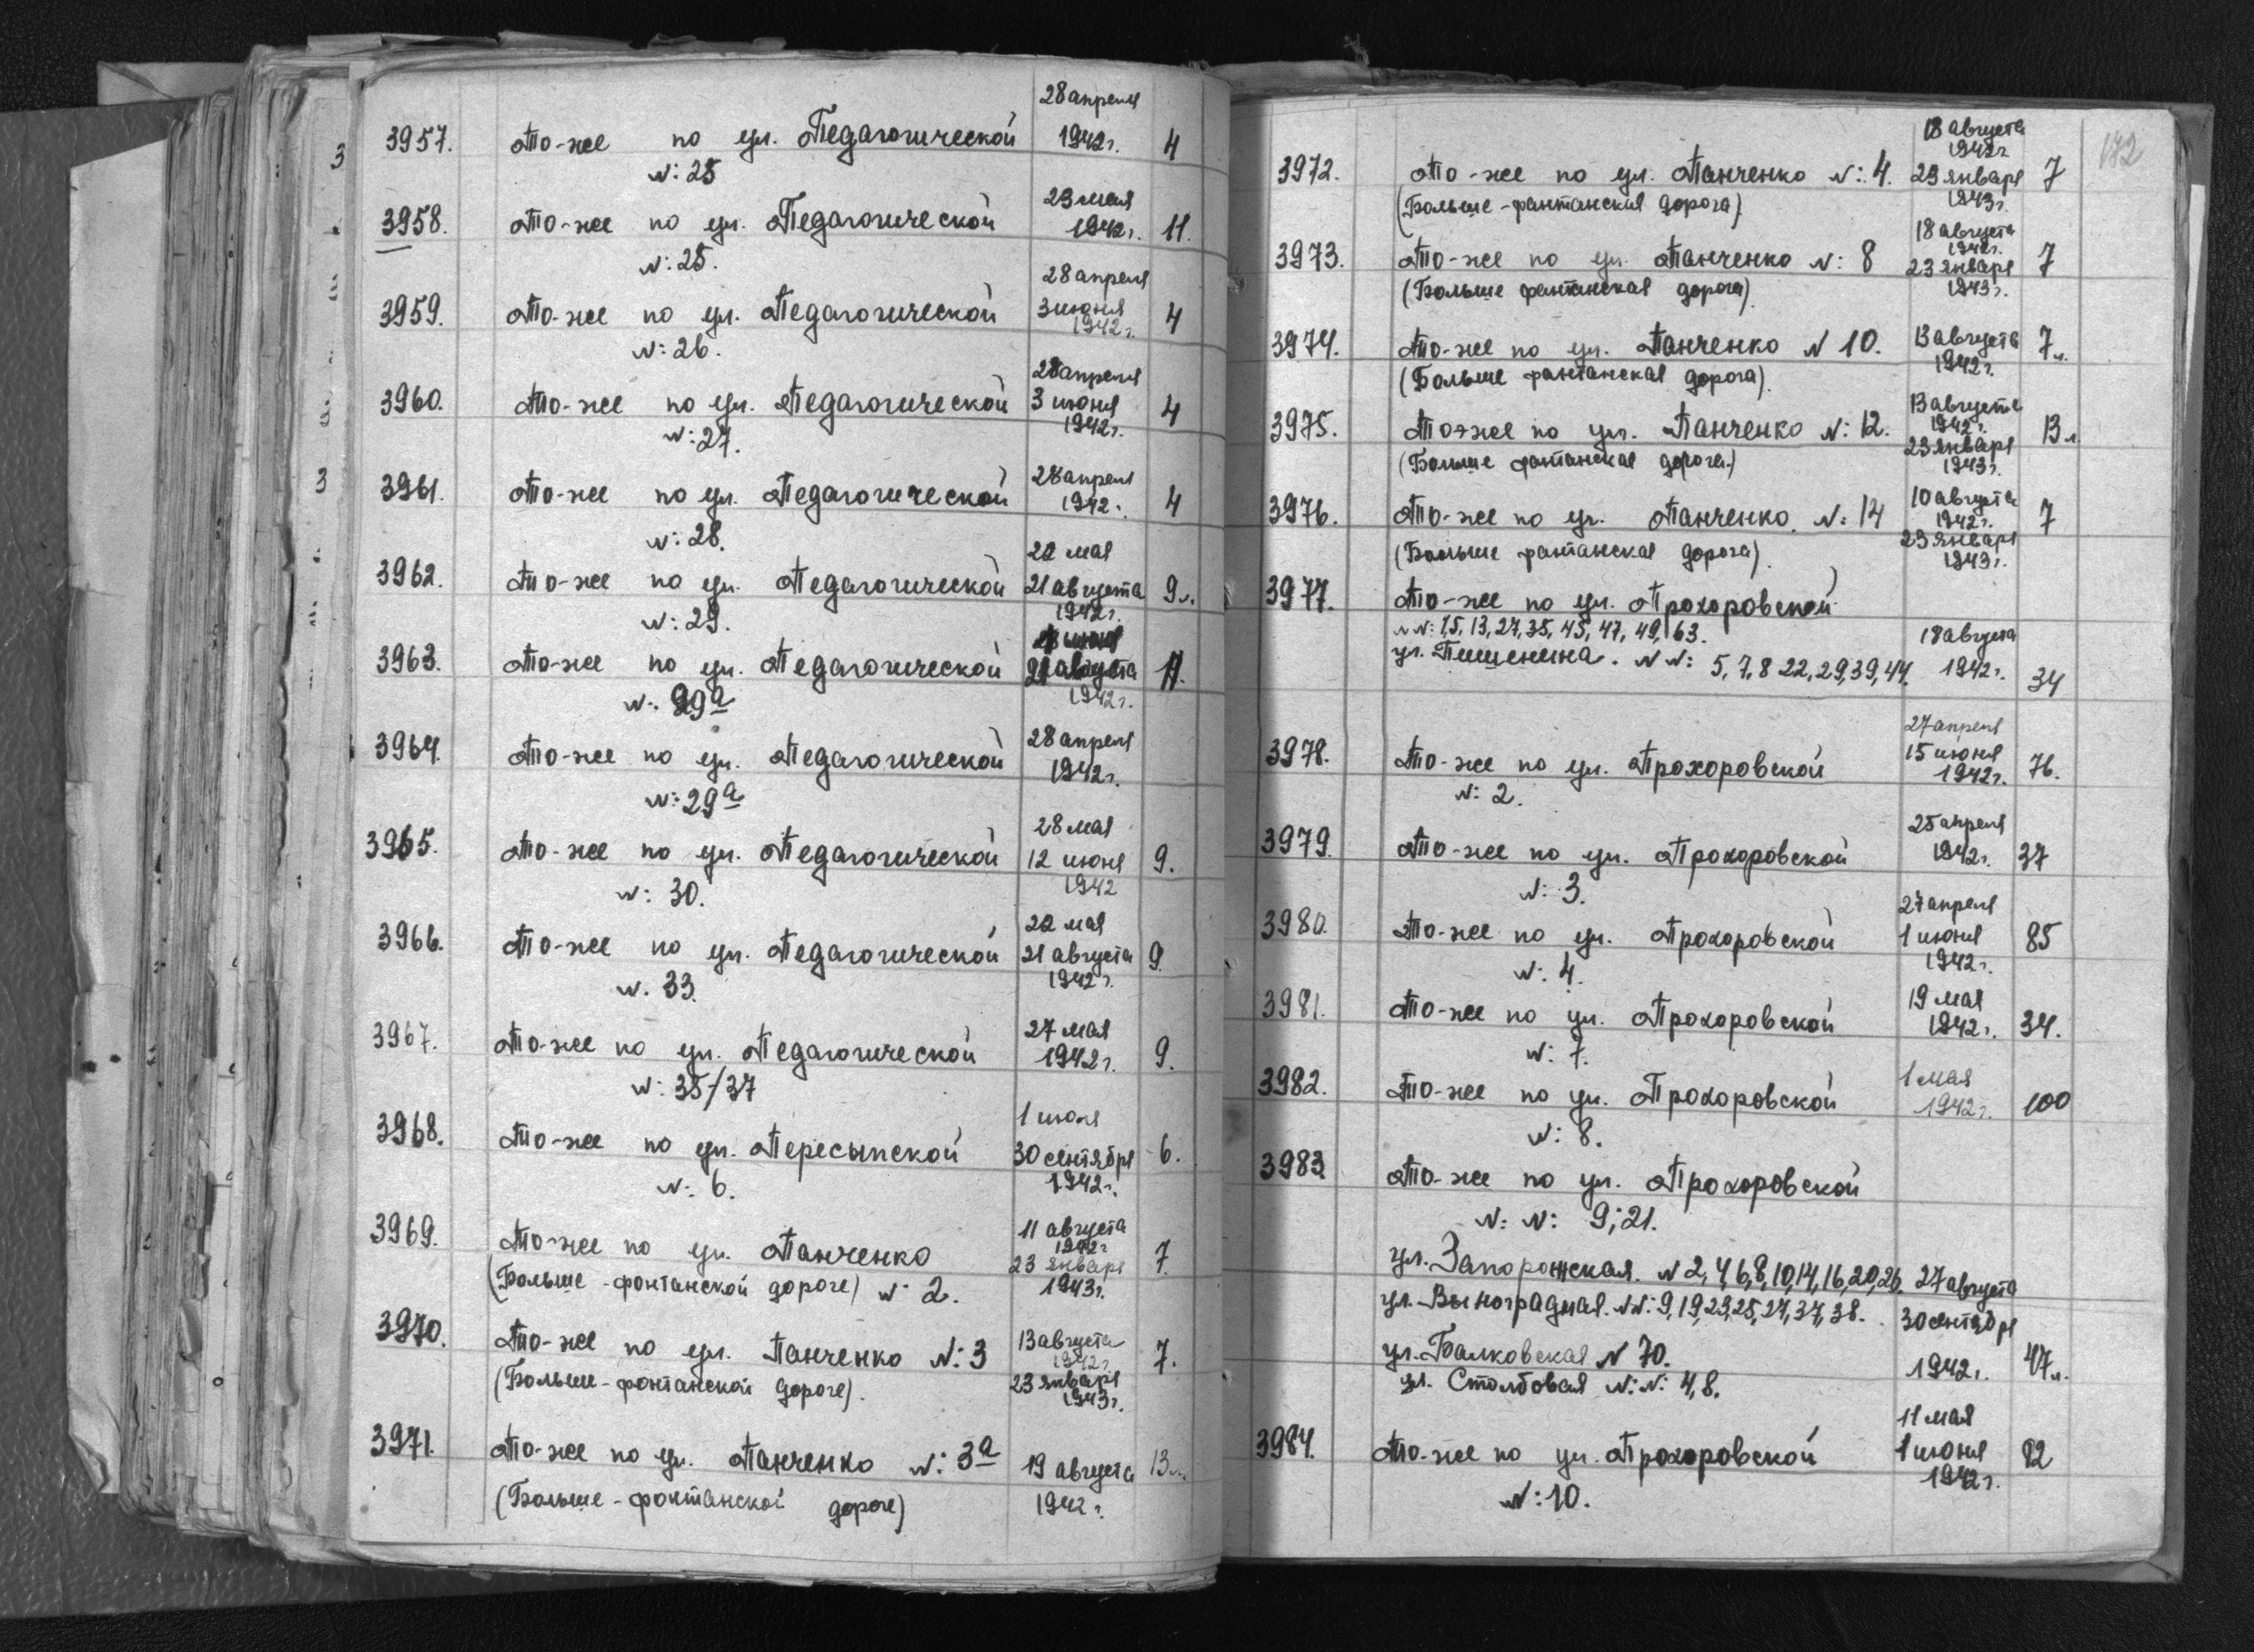 28 апреля
3957. То-же по ул. Педагогической 1942 г. 4
N: 25
3958. То-же по ул. Педагогической 23 мая 1942 г. 11.
N: 25.
28 апреля
3959. То-же по ул. Педагогической 3 июня 4
N: 26. 1942 г.
28 апреля
3960. То-же по ул. Педагогической 3 июня 4
N: 27. 1942 г.
3961. То-же по ул. Педагогической 28 апреля 1942 г. 4
N: 28.
22 мая
3962. То-же по ул. Педагогической 21 августа 9 л.
N: 29. 1942 г.
3963. То-же по ул. Педагогической августа 11.
N: 29а 1942 г.
3964. То-же по ул. Педагогической 28 апреля 1942 г.
N: 29а
28 мая
3965. То-же по ул. Педагогической 12 июня 9.
N: 30. 1942
22 мая
3966. То-же по ул. Педагогической 21 августа 9
N. 33. 1942 г.
3967. То-же по ул. Педагогической 27 мая 1942 г. 9.
N: 35/37
1 июля
3968. То-же по ул. Пересыпской 30 сентября 6.
N: 6. 1942 г.
11 августа
3969. То-же по ул. Панченко 1942 г 7.
(Больше-фонтанской дороге) N: 2. 23 января 1943 г.
3970. То-же по ул. Панченко N: 3 13 августа 1942 г. 7.
(Больше-фонтанской дороге). 23 января 1943 г.
3971. То-же по ул. Панченко N: 3а 19 августа 13 л.
(Больше-фонтанской дороге) 1942 г.
172
18 августа 1942 г
3972. То-же по ул. Панченко N: 4. 23 января 7
(Больше-фантанская дорога) 1943 г.
18 августа 1942 г.
3973. То-же по ул. Панченко N: 8 23 января 7
(Больше фантанская дорога) 1943 г.
3974. То-же по ул. Панченко N 10. 13 августа 7 л.
(Больше фантанская дорога). 1942 г.
13 августа
3975. То-же по ул. Панченко N: 12. 1942 г. 13 л
(Больше фантанская дорога.) 23 января 1943 г.
10 августа
3976. То-же по ул. Панченко. N: 14 1942 г. 7
(Больше фантанская дорога). 23 января 1943 г.
3977. То-же по ул. Прохоровской
NN: 1,5, 13, 27, 35, 45, 47, 49, 63. 18 августа
ул. Пишенина. NN: 5, 7, 8 22, 29, 39, 44. 1942 г. 34
27 апреля
3978. То-же по ул. Прохоровской 15 июня 1942 г. 76.
N: 2.
25 апреля
3979. То-же по ул. Прохоровской 1942 г. 37
N: 3.
27 апреля
3980. То-же по ул. Прохоровской 1 июня 85
N: 4. 1942 г.
19 мая
3981. То-же по ул. Прохоровской 1942 г. 34.
N: 7.
1 мая
3982. То-же по ул. Прохоровской 1942 г. 100
N: 8.
3983 То-же по ул. Прохоровской
N: N: 9; 21.
ул. Запорожская. N 2, 4, 6, 8, 10, 14, 16, 20, 26. 27 августа
ул. Выноградная. NN: 9, 19, 23, 25, 27, 37, 38. 30 сентября
ул. Балковская N 70. 1942 г. 47 л.
ул. Столбовая N: N: 4, 8.
11 мая
3984. То-же по ул. Прохоровской 1 июня 92
N: 10. 1942 г.